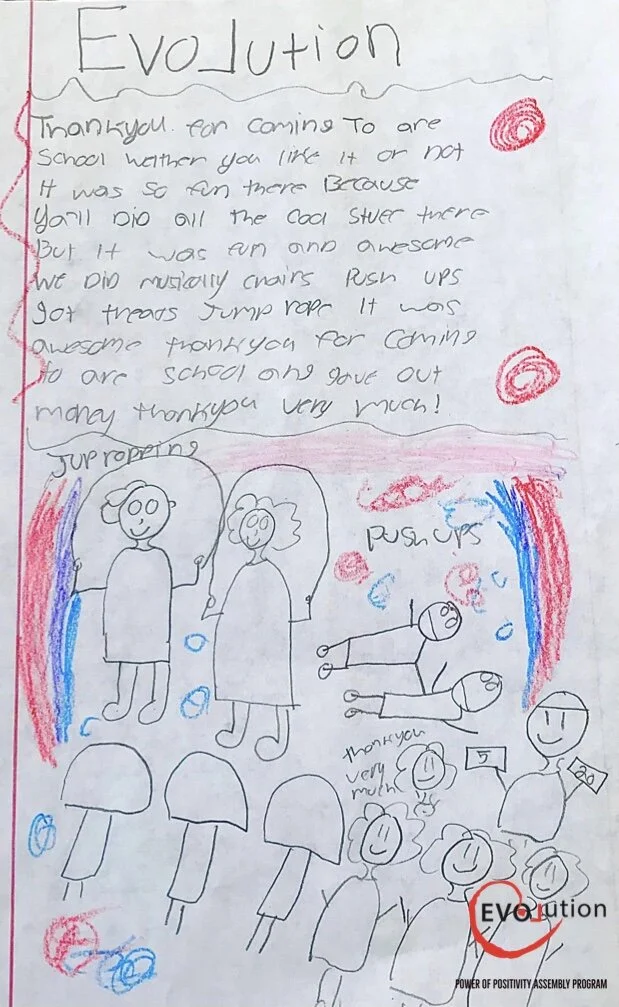 Evolution
Thankyou for coming To are
School weither you like it or not
It was so fun there Because
Ya'll Did all the cool stuef there
But it was fun and awesome
We Did musically chairs Push ups
got threads Jump rope It was
awesome thankyou for coming
to are school and gave out
money thankyou very much!
Jupropping
Push ups
thankyou
very
much
5
20
EVOLution
POWER OF POSITIVITY ASSEMBLY PROGRAM